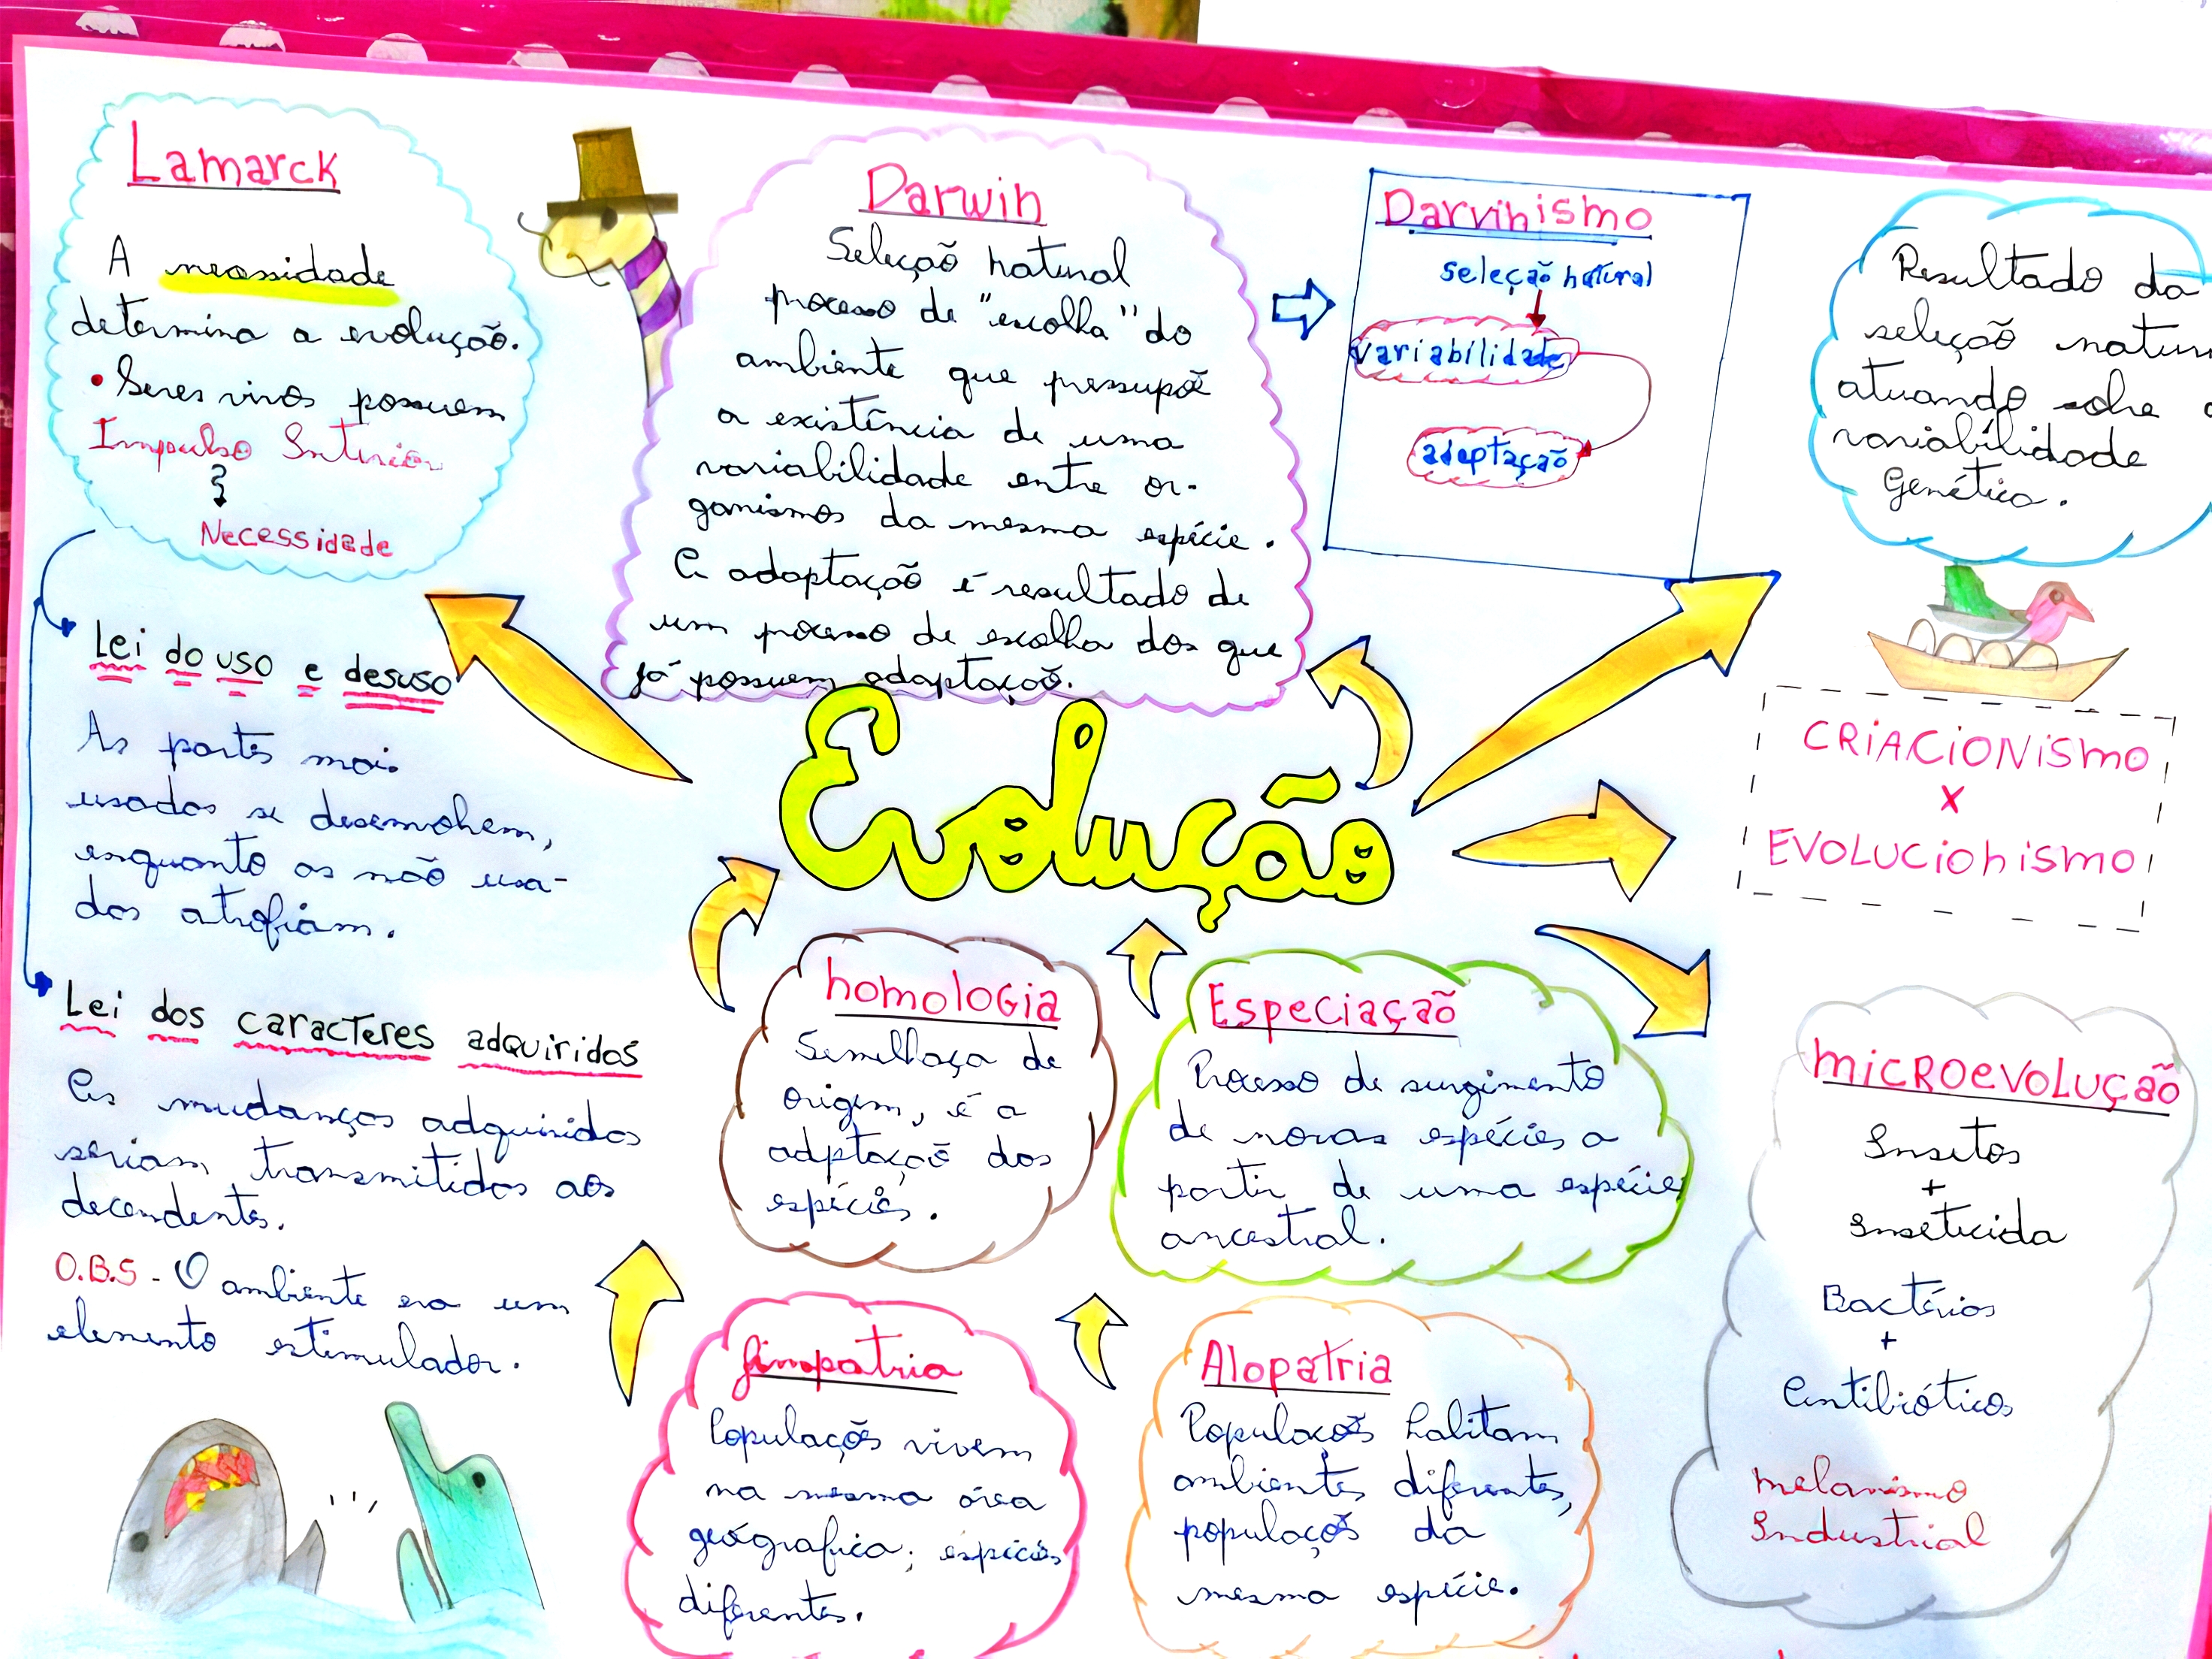 Lamarck
A necessidade
determina a evolução.
• Seres vivos possuem
Impulso Interior
Necessidade
Lei do uso e desuso
As partes mais
usadas se desenvolvem,
enquanto as não usa-
das atrofiam.
Lei dos caracteres adquiridos
As mudanças adquiridas
seriam transmitidas aos
decendentes.
O.B.S - O ambiente era um
elemento estimulador.
Darwin
Seleção natural
processo de "escolha" do
ambiente que pressupõe
a existência de uma
variabilidade entre or-
ganismos da mesma espécie.
A adaptação é resultado de
um processo de escolha dos que
já possuem adaptação.
Darvinismo
seleção natural
variabilidade
adaptação
Resultado da
seleção natur
atuando sobre a
variabilidade
Genética.
Evolução
CRIACIONISMO
X
EVOLUCIONISMO
homologia
Semelhaça de
origem, é a
adptação das
espécies.
Especiação
Processo de surgimento
de novas espécies a
partir de uma espécie
ancestral.
microevolução
Insetos
+
Inseticida
Bactérias
+
Antibióticos
melanismo
Industrial
Simpatria
Populações vivem
na mesma área
geográfica; espécies
diferentes.
Alopatria
Populações habitam
ambientes diferentes,
populações da
mesma espécie.